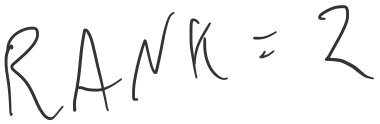 RANK = 2